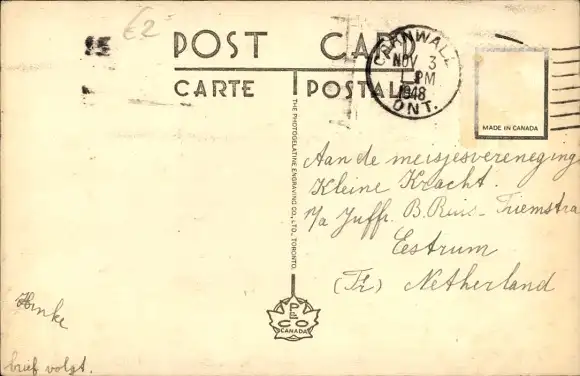 €2
POST CARD
CARTE POSTALE
CORNWALL
NOV 3
1 PM
1948
ONT.
MADE IN CANADA
THE PHOTOGELATINE ENGRAVING CO., LTD., TORONTO.
Aan de meisjesvereneging
Kleine Kracht.
p/a Juffr. B. Riemstra
Eestrum
(Fr) Netherland
PECO
CANADA
Hinke
brief volgt.